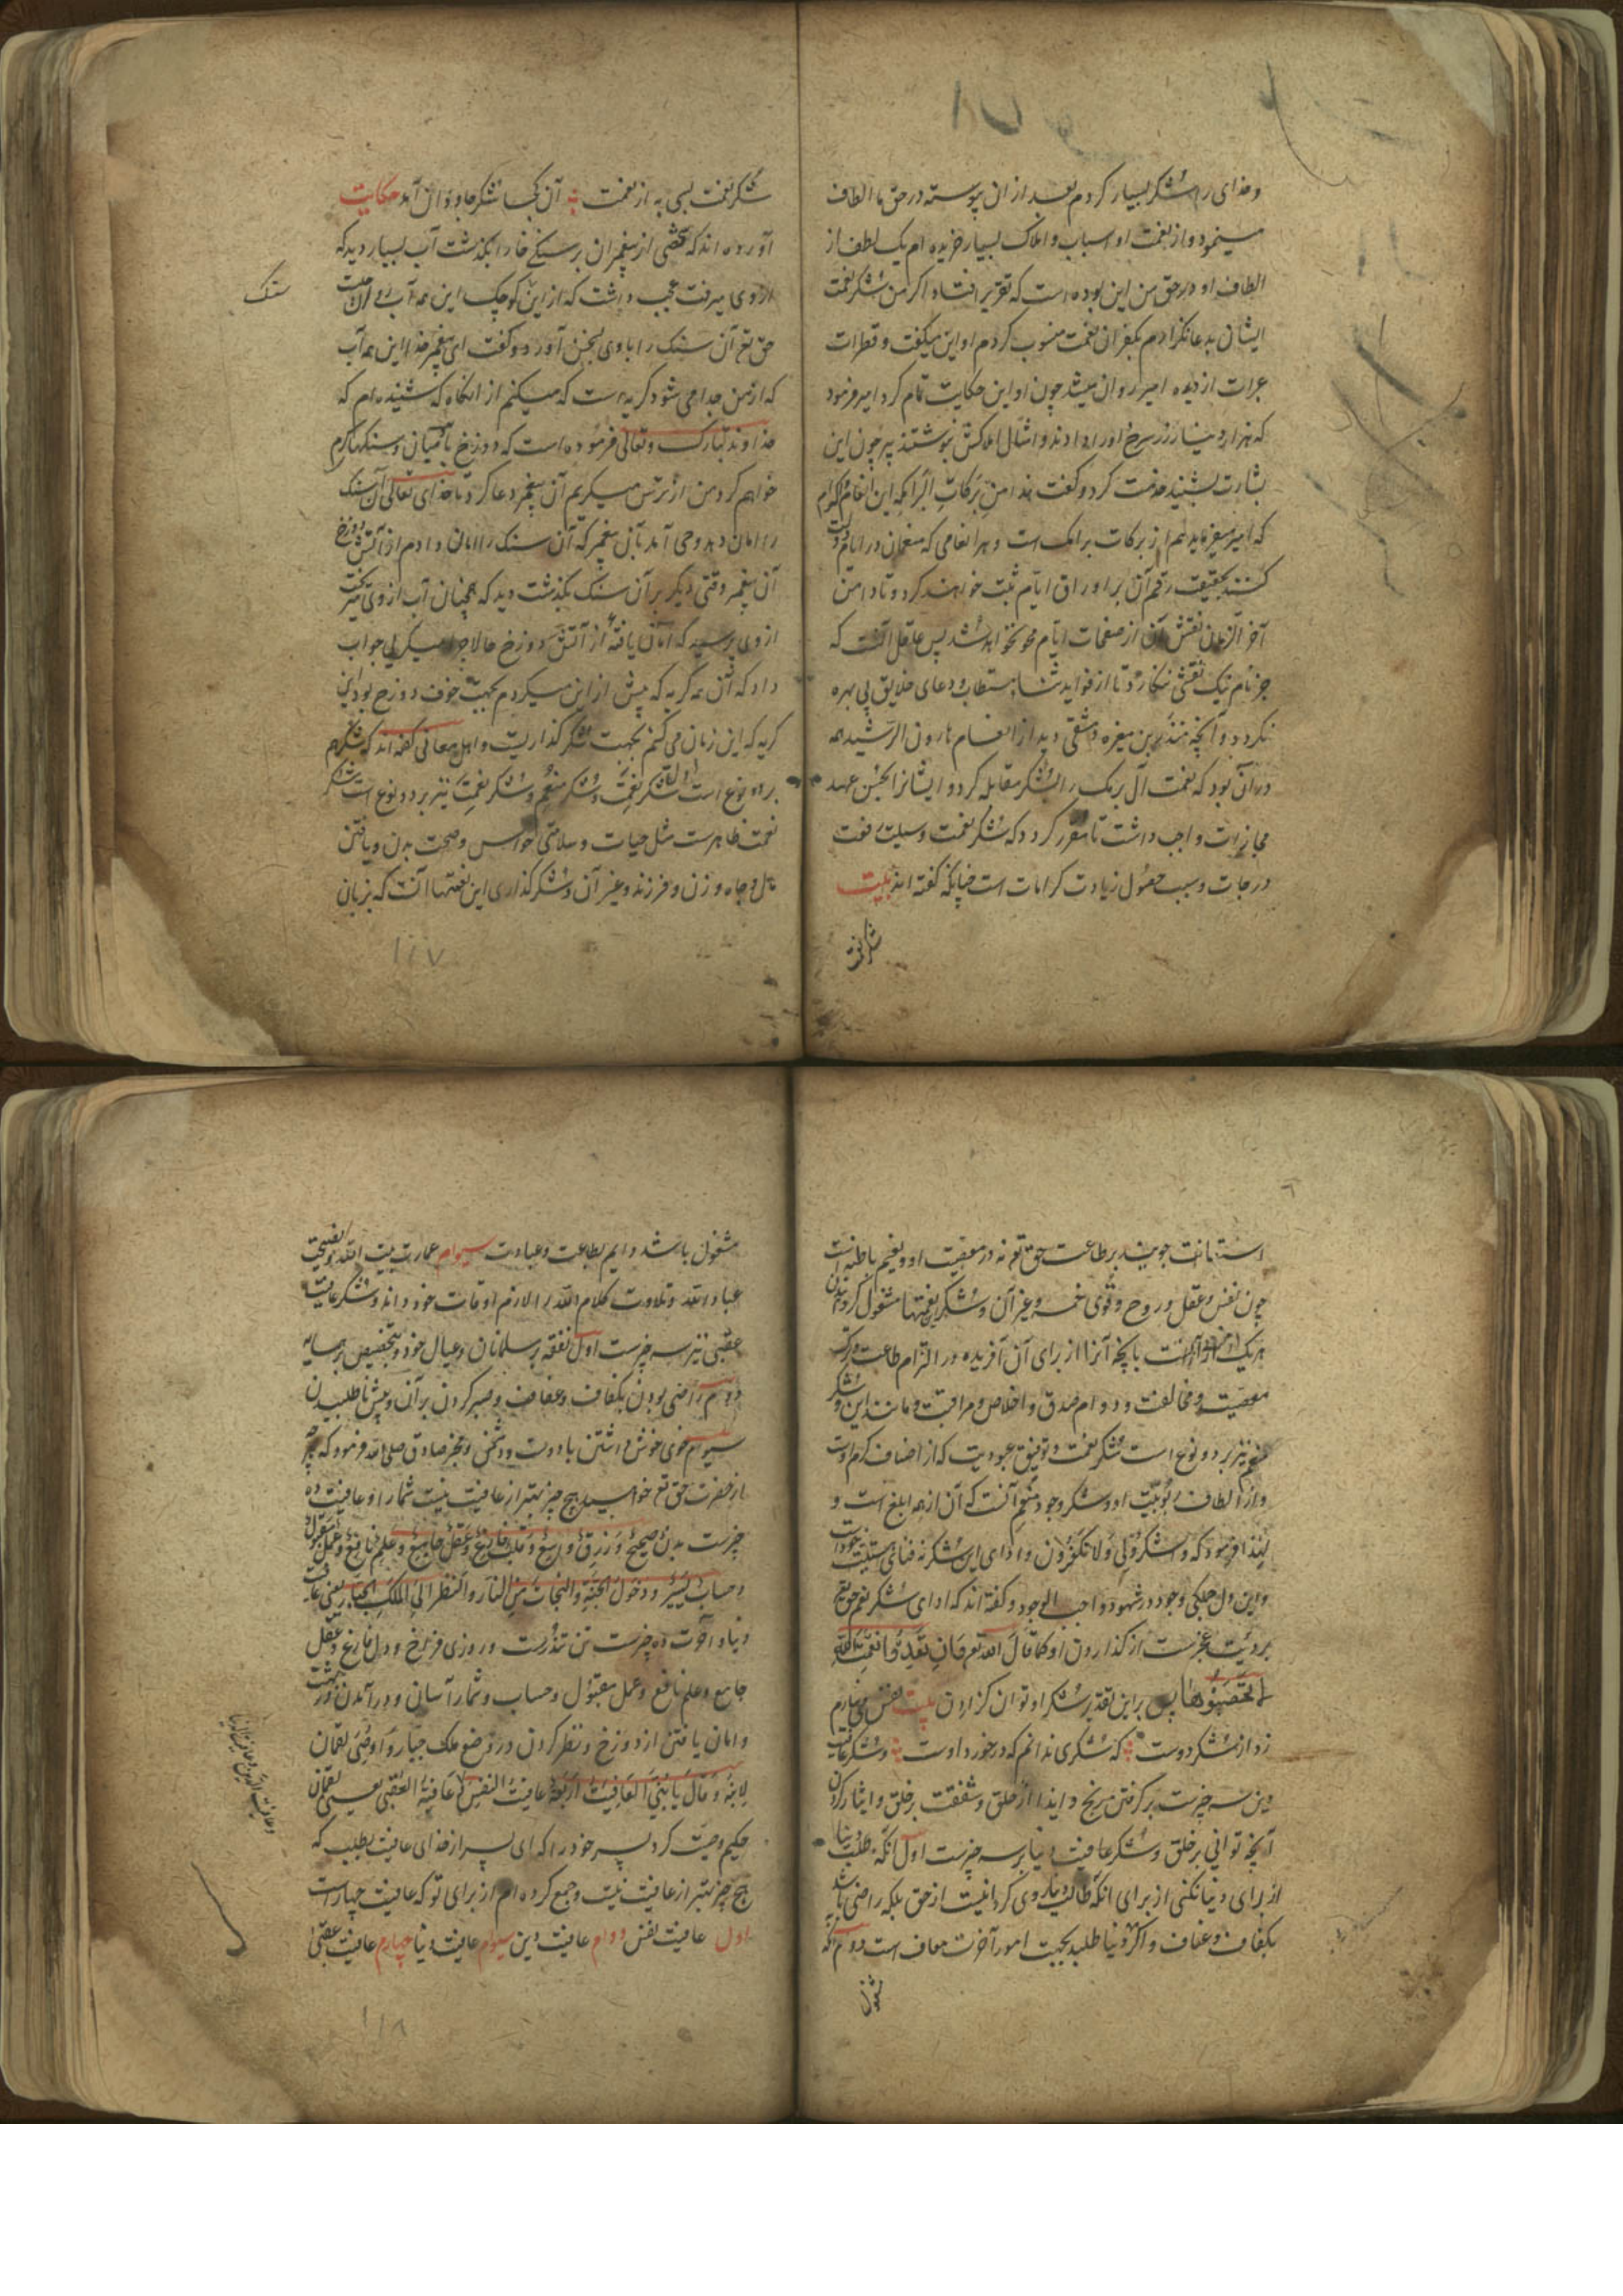 وخدای را شکر بسیار کردم بعد از ان پیوسته در حق ما الطاف
مینمود و از نعمت او اسباب و املاک بسیار خریده ام یک لطف از
الطاف او در حق من این بوده است که تقریر افتاد اکر من شکر نعمت
ایشان بدعا نکزارم بکفران نعمت منسوب کردم او این میکفت و قطرات
عبرات از دیده امیر روان میشد چون او این حکایت تمام کرد امیر فرمود
که هزار دینار زر سرخ اورا دادند و امثال املاکش نوشتند پیر چون این
بشارت بشنید خدمت کرد و کفت هذا من برکات البرامکه این انعام و اکرام
که امیر میفرماید هم از برکات برامک است و هر انعامی که منعمان در ایام دولت
کنند بحقیقت رقم آن بر اوراق ایام ثبت خواهند کرد و تا دامن
آخر الزمان نقش آن از صفحات ایام محو نخواهد شد پس عاقل آنست که
جز نام نیک نقشی ننکارد تا از فواید ثناء مستطاب و دعای خلایق بی بهره
نکردد و آنچه منذر بن مغیره دمشقی دید از انعام هارون الرشید همه
در آن بود که نعمت آل برمک را بشکر مقابله کرد و ایشانرا بحسن عهد
مجازات واجب داشت تا مقرر کردد که شکر نعمت وسیلت رفعت
درجات و سبب حصول زیادت کرامات است چنانکه کفته اند بیت
شکر نعمت
شکر نعمت بسی به از نعمت آن کجا شکر جاودان آمد حکایت
آورده اند که شخصی از پیغمبران بر سنکی خارا بکذشت آب بسیار دید که
از وی میرفت عجب داشت که از این کوچک این همه آب روان چیست
سنک
حق تع آن سنک را با وی بسخن آورد و کفت ای پیغمبر خدا این همه آب
که از من جدا می شود کریه است که میکنم از آنکاه که شنیده ام که
خداوند تبارک و تعالی فرموده است که دوزخ بآدمیان و سنکها کرم
خواهم کرد من از ترس میکریم آن پیغمبر دعا کرد تا خدای تعالی آن سنک
را امان دهد وحی آمد بآن پیغمبر که آن سنک را امان دادم از آتش دوزخ
آن پیغمبر وقتی دیکر بر آن سنک بکذشت دید که همچنان آب از وی میریخت
از وی پرسید که امان یافتهٔ از آتش دوزخ حالا چرا میکریی جواب
داد که آن همه کریه که پیش از این میکردم بجهت خوف دوزخ بود این
کریه که این زمان می کنم بجهت شکر کذاریست و اهل معانی کفته اند که شکر هم
بر دو نوع است اول شکر نعمت و شکر منعم و شکر نعمت نیز بر دو نوع است شکر
نعمت ظاهرست مثل حیات و سلامتی حواس و صحت بدن و یافتن
مال و جاه و زن و فرزند و غیر آن و شکر کذاری این نعمتها آنست که بزبان
۱۱۷
استعانت جویند بر طاعت حق تع نه در معصیت او و نعیم باطنه است
چون نفس و عقل و روح و قوی خمسه و غیر آن و شکر این نعمتها مشغول کردانیدن
هر یک از آنهاست بآنچه آنرا از برای آن آفریده در التزام طاعت و ترک
معصیت و مخالفت و دوام صدق و اخلاص و مراقبت و مانند این و شکر
منعم نیز بر دو نوع است شکر نعمت و توفیق عبودیت که از اصناف کرم اوست
و از الطاف ربوبیت او و شکر وجود منعم آنست که آن از همه ابلغ است و
لهذا فرمود که واشکروا لی ولا تکفرون و ادای این شکر نه فنای هستیت
و این دل جلی وجود در شهود واجب الوجود و کفته اند که ادای شکر نعم حق تع
برؤیت عجزست از کذاردن او کما قال الله تع فان تعدوا نعمة الله
لا تحصوها پس بر این تقدیر شکر او توان کزاردن بیت نفس می نیارم
زد از شکر دوست که شکری ندانم که در خورد اوست و شکر عافیت
دین سه چیزست بر کرفتن رنج و ایذا از خلق و شفقت بر خلق و ایثار کردن
آنچه توانی بر خلق و شکر عافیت دنیا بر سه چیزست اول آنکه طلب دنیا
از برای دنیا نکنی از برای آنکه طالب دنیا روی کردانیست از حق بلکه راضی باشد
بکفاف و عفاف و اکر دنیا طلبد بجهت امور آخرت معاف است دوم آنکه
مشغول
مشغول باشد دایم بطاعت و عبادت سیوم عمارت بیت الله و نصیحت
عباد الله و تلاوت کلام الله را لازم اوقات خود داند و شکر عافیت
عقبی نیز سه چیزست اول نفقه بر مسلمانان و عیال خود و بتخصیص بر همسایه
دوم راضی بودن بکفاف و عفاف و صبر کردن بر آن و بیش ناطلبیدن
سیوم خوی خوش داشتن با دوست و دشمن و مخبر صادق صلی الله فرمود که هر چه
از حضرت حق تع خواهید هیچ چیز بهتر از عافیت نیست شما را و عافیت ده
چیزست بدن صحیح و رزق واسع و قلب فارغ و عقل جامع و علم نافع و عمل مقبول
و حساب یسیر و دخول الجنة والنجات من النار والنظر الی الملک الجبار یعنی عافیت
دنیا و آخرت ده چیزست تن تندرست و روزی فراخ و دل فارغ و عقل
جامع و علم نافع و عمل مقبول و حساب و شمار آسانی و در آمدن در بهشت
و امان یافتن از دوزخ و نظر کردن در وضع ملک جبار و اوصی لقمان
لابنه و قال یا بنی العافیت اربعة عافیت النفس و عافیة العقبی یعنی لقمان
و عافیت الدین و عافیة الدنیا
حکیم وصیت کرد پسر خود را که ای پسر از خدای عافیت بطلب که
هیچ چیز بهتر از عافیت نیست و جمع کرده ام از برای تو که عافیت چهارست
اول عافیت نفس دوم عافیت دین سیوم عافیت دنیا چهارم عافیت عقبی
۱۱۸